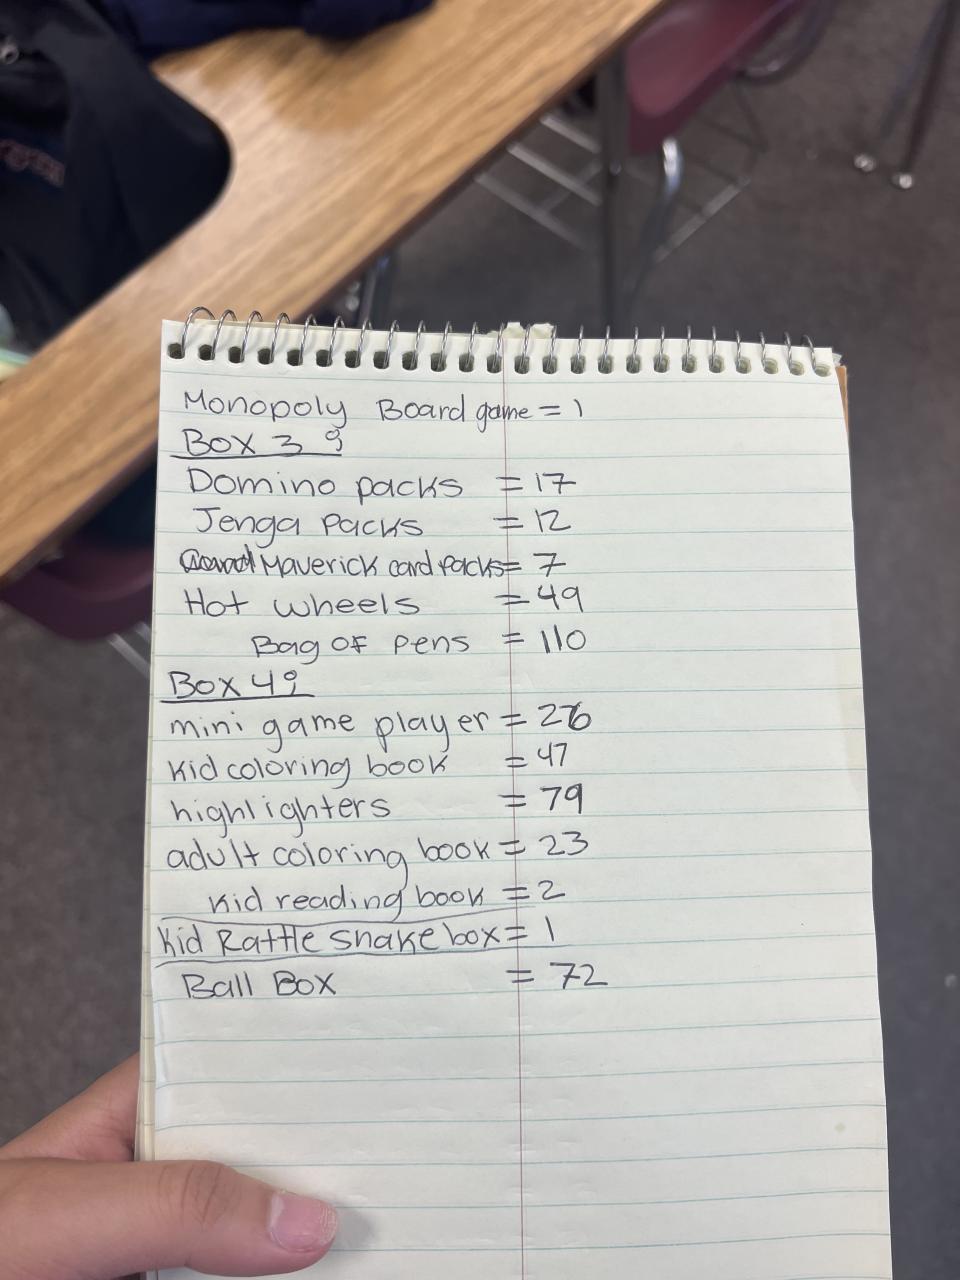 Monopoly Board game = 1
Box 3:
Domino packs = 17
Jenga Packs = 12
Maverick card Packs = 7
Hot wheels = 49
Bag of pens = 110
Box 4:
mini game player = 26
kid coloring book = 47
highlighters = 79
adult coloring book = 23
kid reading book = 2
Kid Rattle snake box = 1
Ball Box = 72